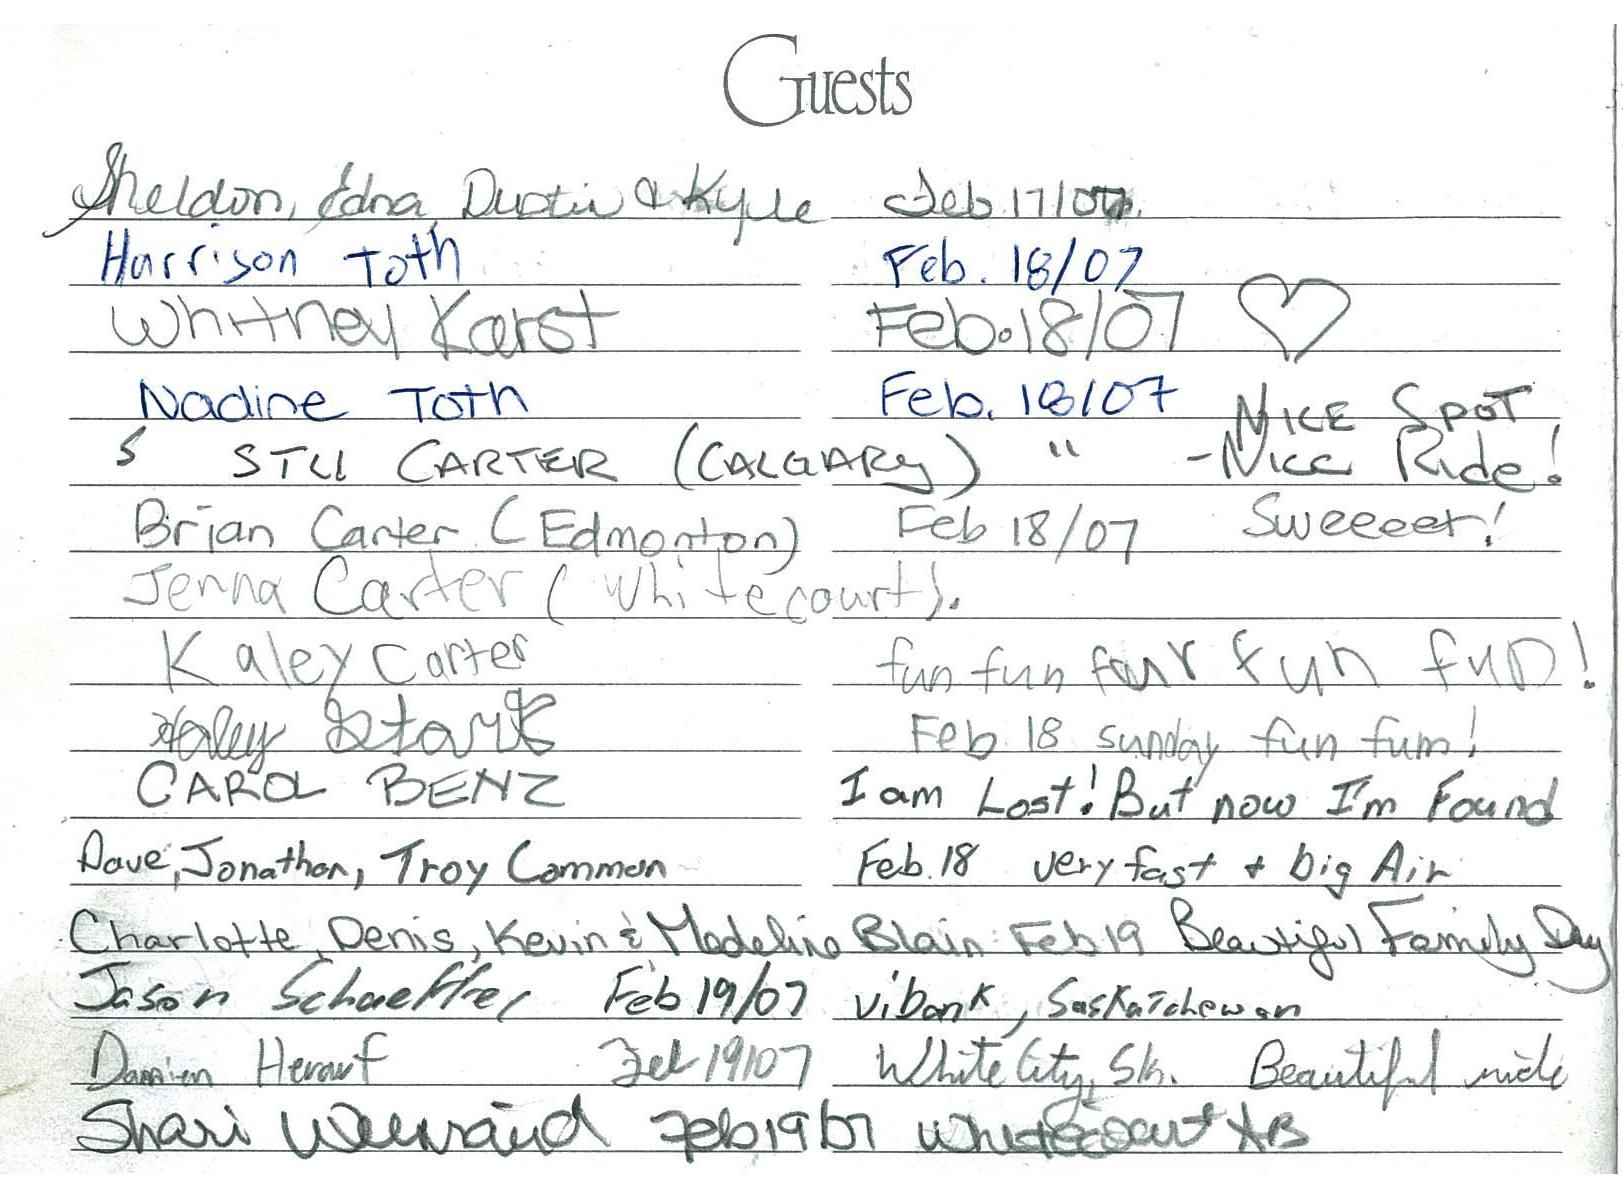 Guests
Sheldon, Edna, Dustin & Kyle Feb 17/07.
Harrison Toth Feb. 18/07
Whitney Karst Feb. 18/07
Nadine Toth Feb. 18/07 NICE SPOT
S STU CARTER (CALGARY) " - Nice Ride!
Brian Carter (Edmonton) Feb 18/07 Sweeeet!
Jenna Carter (Whitecourt).
Kaley Carter fun fun fun fun fun!
Haley Feb 18 sunday fun fum!
CAROL BENZ I am Lost! But now I'm Found
Dave, Jonathon, Troy Common Feb. 18 very fast + big Air
Charlotte, Denis, Kevin & Madeline Blain Feb 19 Beautiful Family Day
Jason Schaeffer Feb 19/07 Vibank, Saskatchewan
Damien Herauf Feb 19/07 White City, Sk. Beautiful ride
Shari Feb 19/07 Whitecourt AB